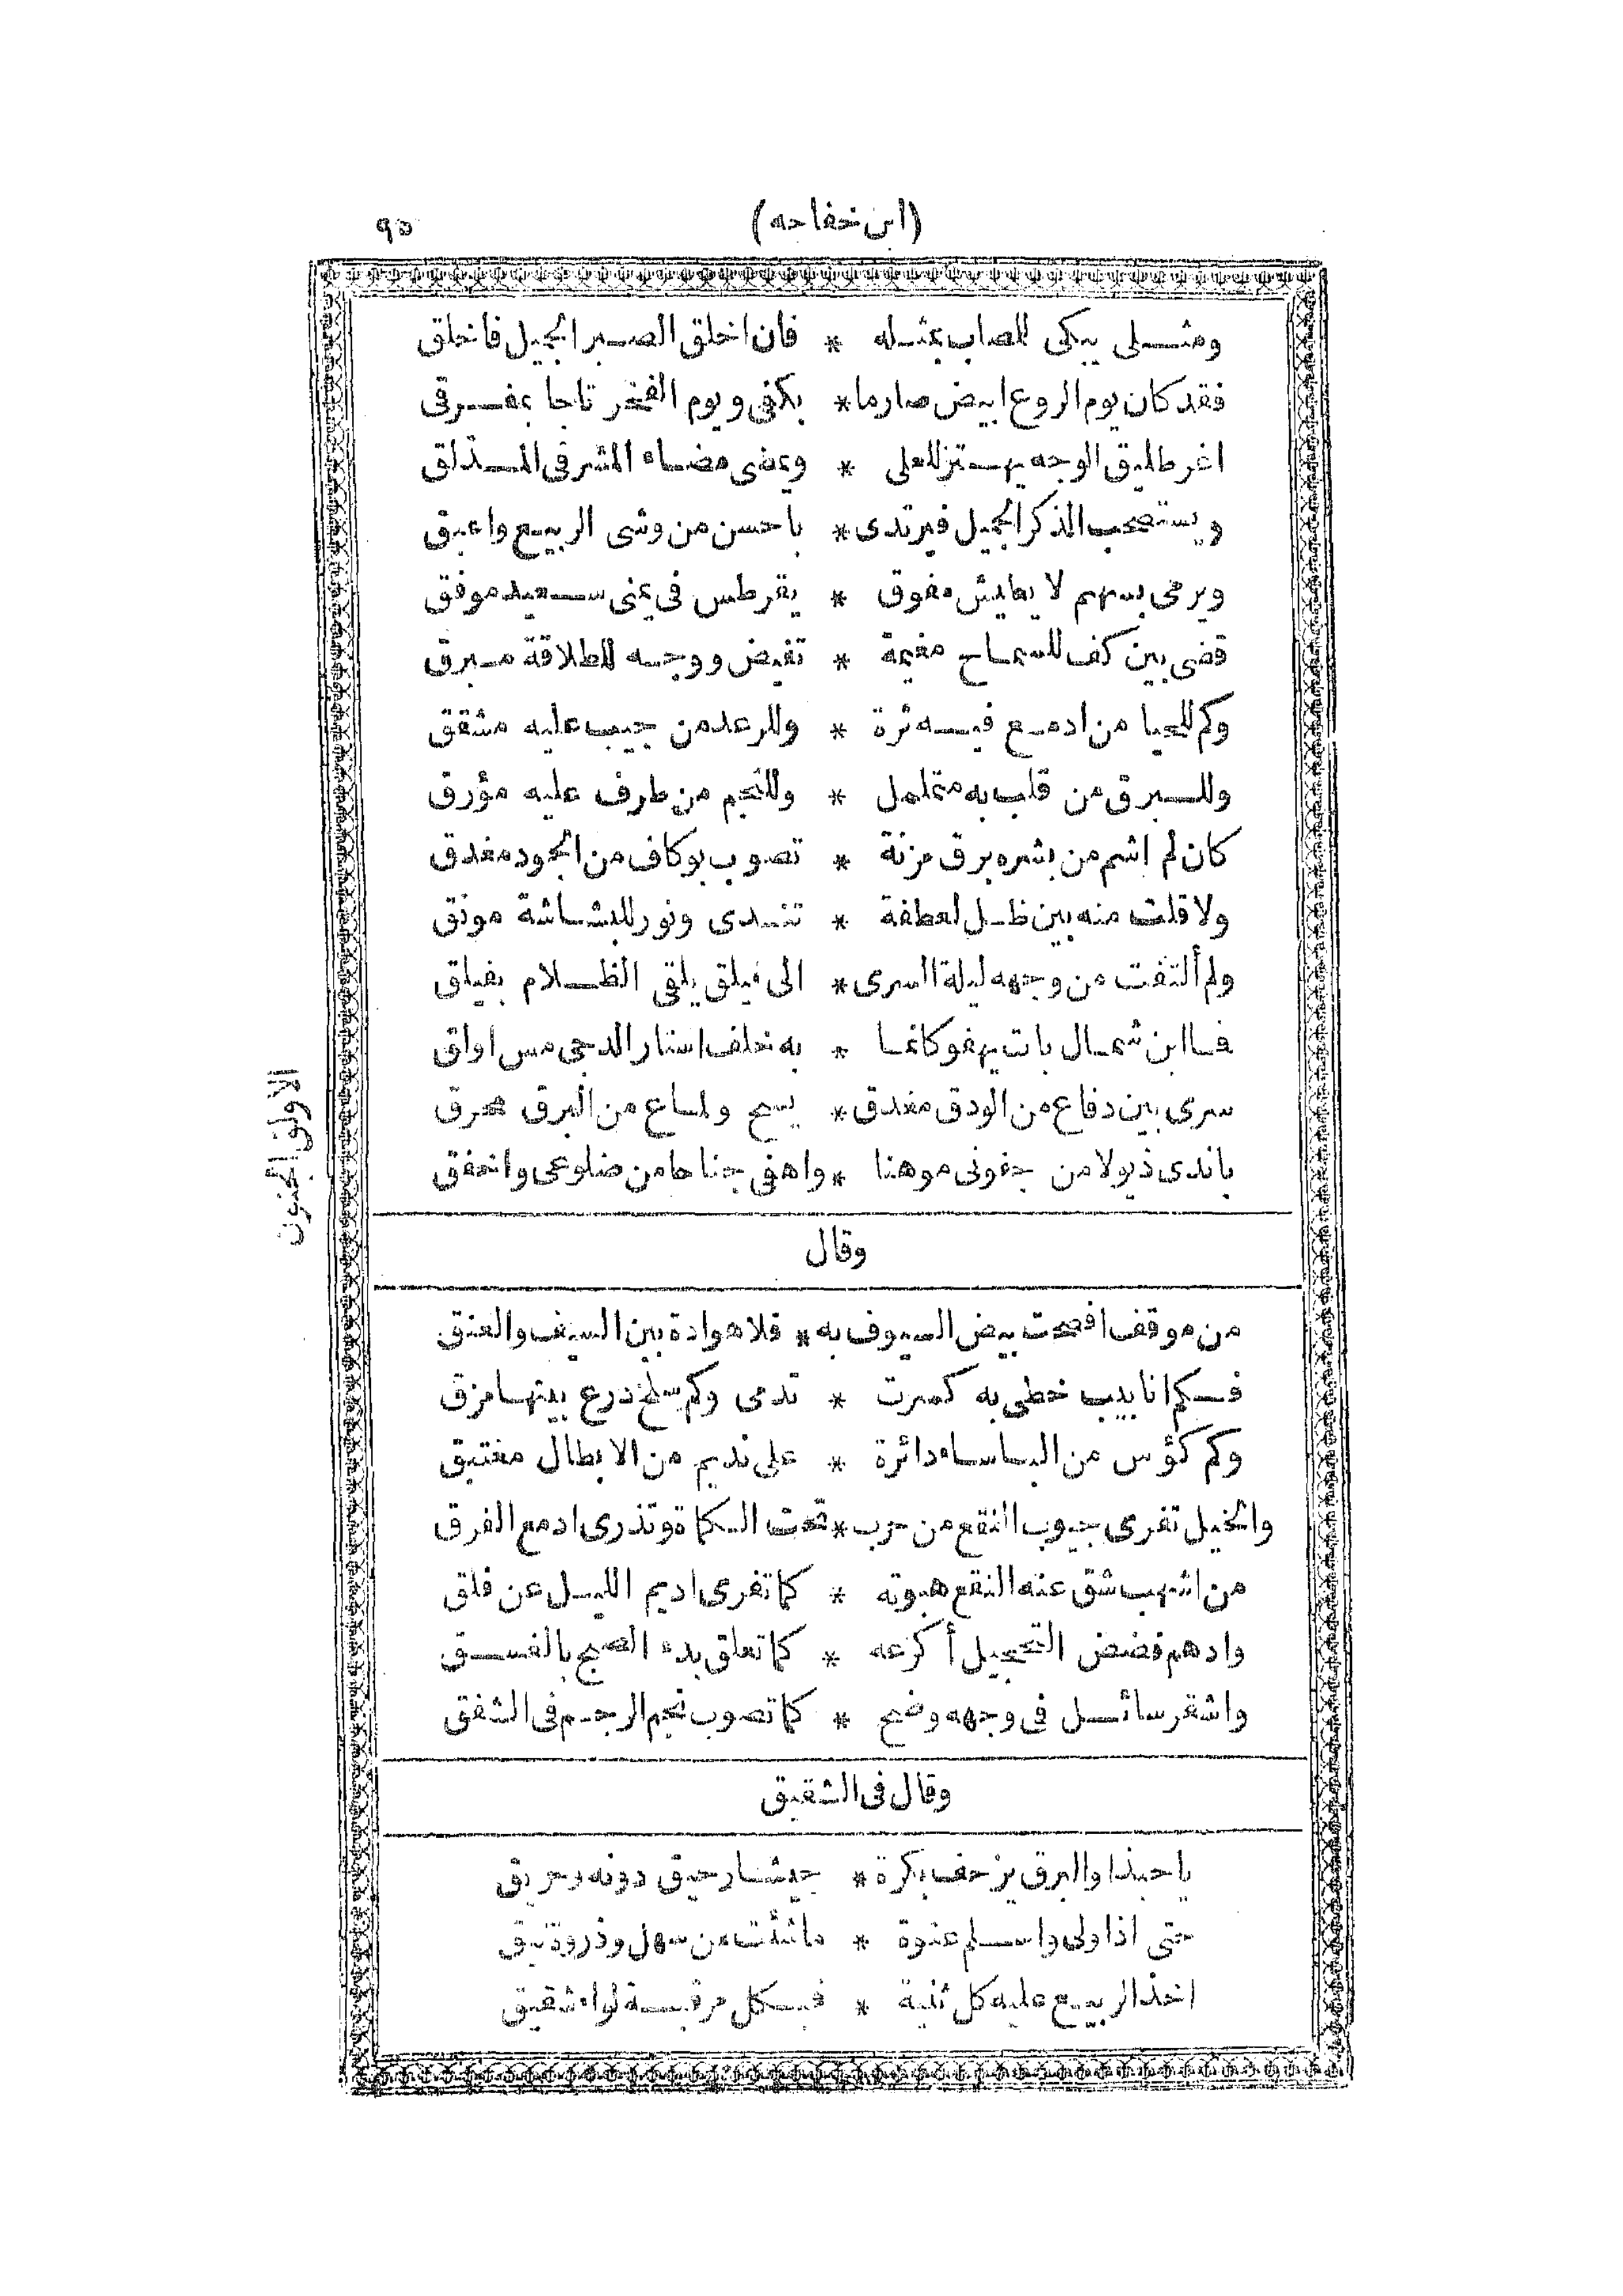 (ابن خفاجه) ٩٥
ومثلى يبكى للمصاب بمثله * فان اخلق الصبر الجميل فاخلق
فقد كان يوم الروع ابيض صارما * بكفى ويوم الفخر تاجا بمفرقى
اغر طليق الوجه يهتز للعلى * ويمضى مضاء المشرفى المذلق
ويستصحب الذكر الجميل فيرتدى * باحسن من وشى الربيع واعبق
ويرمى بسهم لا يطيش مفوق * يقرطس فى يمنى سعيد موفق
قضى بين كف للسماح مغيمة * تفيض ووجه للطلاقة مبرق
وكم للحيا من ادمع فيه ثرة * وللرعد من جيب عليه مشقق
وللبرق من قلب به متململ * وللنجم من طرف عليه مؤرق
كان لم اشم من بشره برق مزنة * تصوب بوكاف من الجود مغدق
ولا قلت منه بين ظل لعطفة * تندى ونور للبشاشة مونق
ولم ألتفت من وجهه ليلة السرى * الى فيلق يلقى الظلام بفيلق
فما ابن شمال بات يهفو كانما * به خلف استار الدجى مس اولق
سرى بين دفاع من الودق مغدق * يسح ولماع من البرق محرق
باندى ذيولا من جفونى موهنا * واهفى جناحا من ضلوعى واخفق
الاولق الجنون
وقال
من موقف افصحت بيض السيوف به * فلا هوادة بين السيف والعنق
فكم انابيب خطى به كسرت * تدمى وكم سلخ درع بينها مزق
وكم كؤس من الباساء دائرة * على نديم من الابطال مغتبق
والخيل تفرى جيوب النقع من حرب * تحت الكماة وتذرى ادمع الفرق
من اشهب شق عنه النقع هبوته * كما تفرى اديم الليل عن فلق
وادهم فضض التحجيل أكرعه * كما تعلق بدء الصبح بالغسق
واشقر سائل فى وجهه وضح * كما تصوب نجم الرجم فى الشفق
وقال فى الشقيق
يا حبذا والبرق يزحف بكرة * جيشا رحيق دونه وحريق
حتى اذا ولى واسلم عنوة * ما شئت من سهل وذروة نيق
اخذ الربيع عليه كل ثنية * فبكل مرقبة لواء شقيق